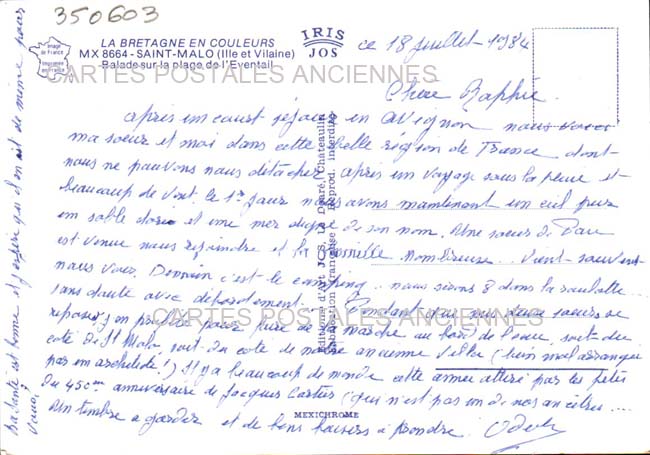 350603
LA BRETAGNE EN COULEURS
MX 8664 - SAINT-MALO (Ille et Vilaine)
Balade sur la plage de l'Eventail
IRIS
JOS
Image de France
Imprimée en France
CARTES POSTALES ANCIENNES
ce 18 juillet - 1984
Chère Raphie
après un court séjour en avignon nous voici
ma soeur et moi dans cette belle région de France dont
nous ne pouvons nous détacher après un voyage sous la pluie et
beaucoup de vent. le 1er jour nous avons maintenant un ciel pur
un sable doré et une mer digne de son nom. Une soeur de Pau
est venue nous rejoindre et la famille nombreuse vient souvent
nous voir. Demain c'est le camping nous serons 8 dans la roulotte...
sans doute avec débordement. Pendant que mes deux soeurs se
reposent, on profite pour faire de la marche au bord de l'eau, soit du
coté de St Malo, soit du coté de notre ancienne villa (bien mal arrangée
par un architecte!) Il y a beaucoup de monde cette année attiré par les fêtes
du 450ème anniversaire de Jacques Cartier (qui n'est pas un de nos ancêtres...
Un timbre a garder et de bons baisers à prendre.
CARTES POSTALES ANCIENNES
Editions d'Art JOS Le Doaré, Chateaulin
Fabrication Française - Reprod. interdite
MEXICHROME
La santé est bonne et j'espère qu'il en est de même pour
vous?